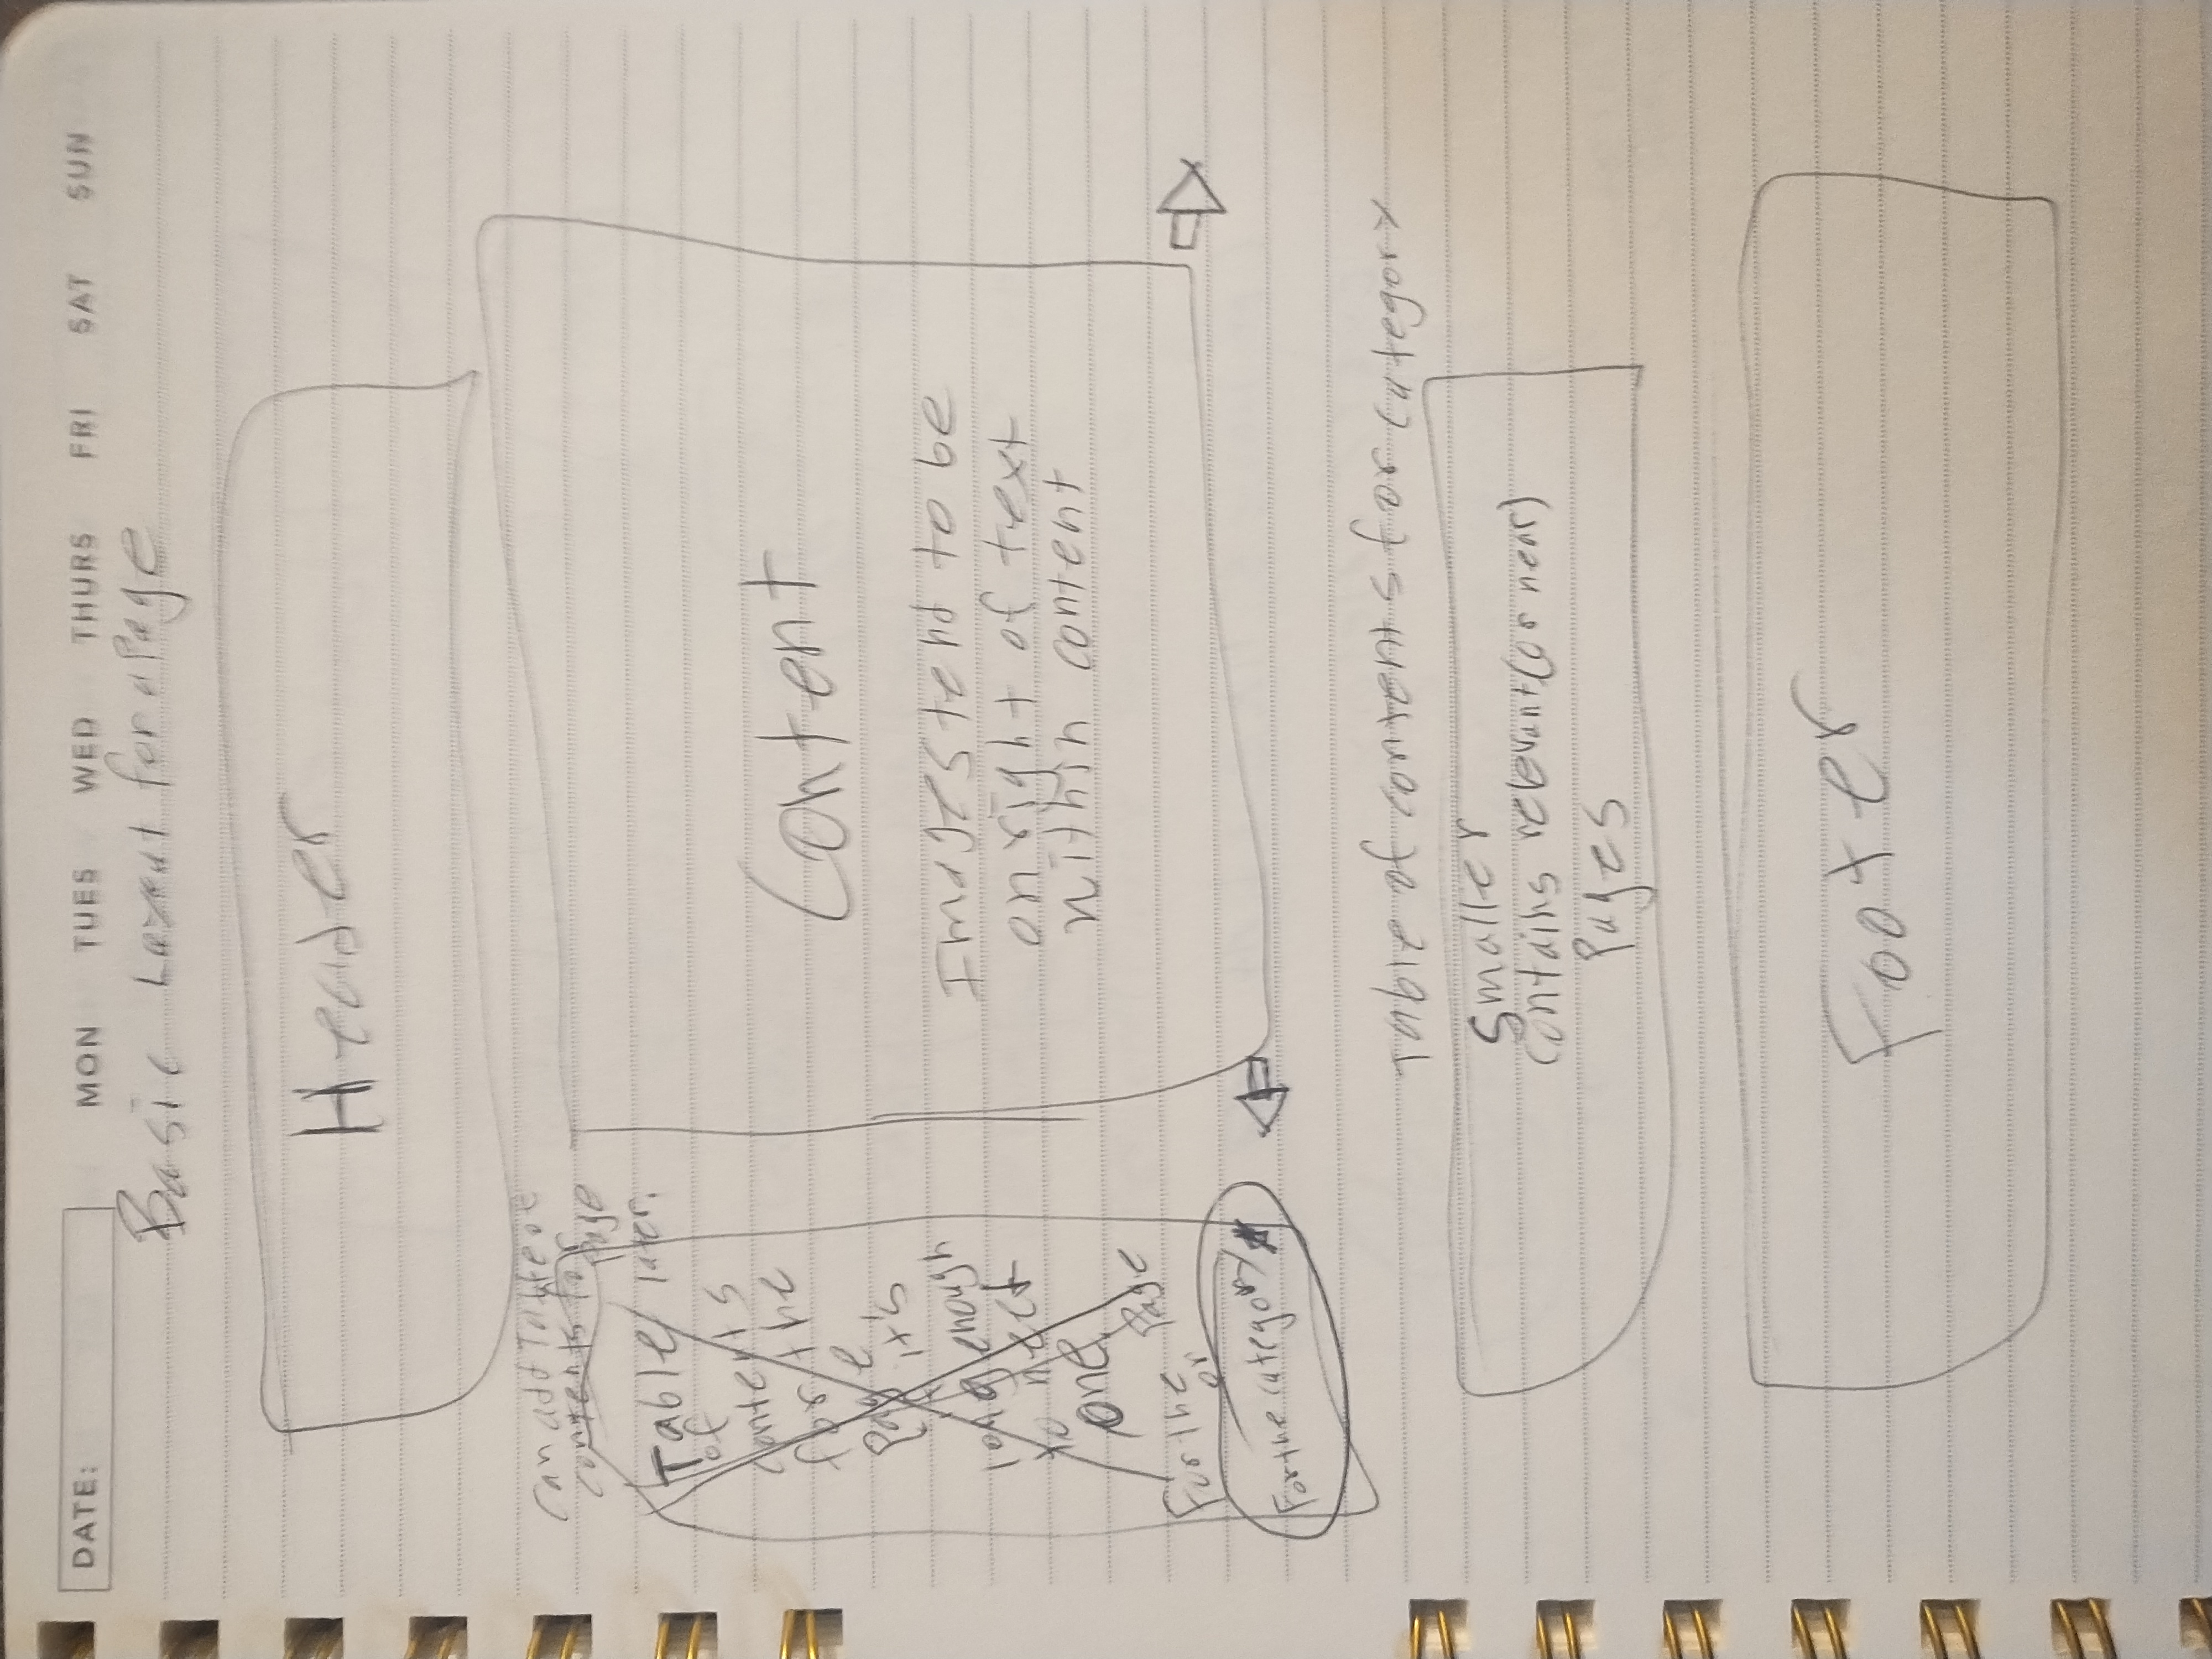 DATE: MON TUES WED THURS FRI SAT SUN
Basic Layout for a Page
Header
can add Table of
contents for
Page
later.
Table
of
contents
for the
Page
if it's
long enough
to need
one.
For the Page
or
For the category
Content
Images tend to be
on right of text
within content
Table of contents for category
Smaller
contains relevant (or near)
Pages
Footer